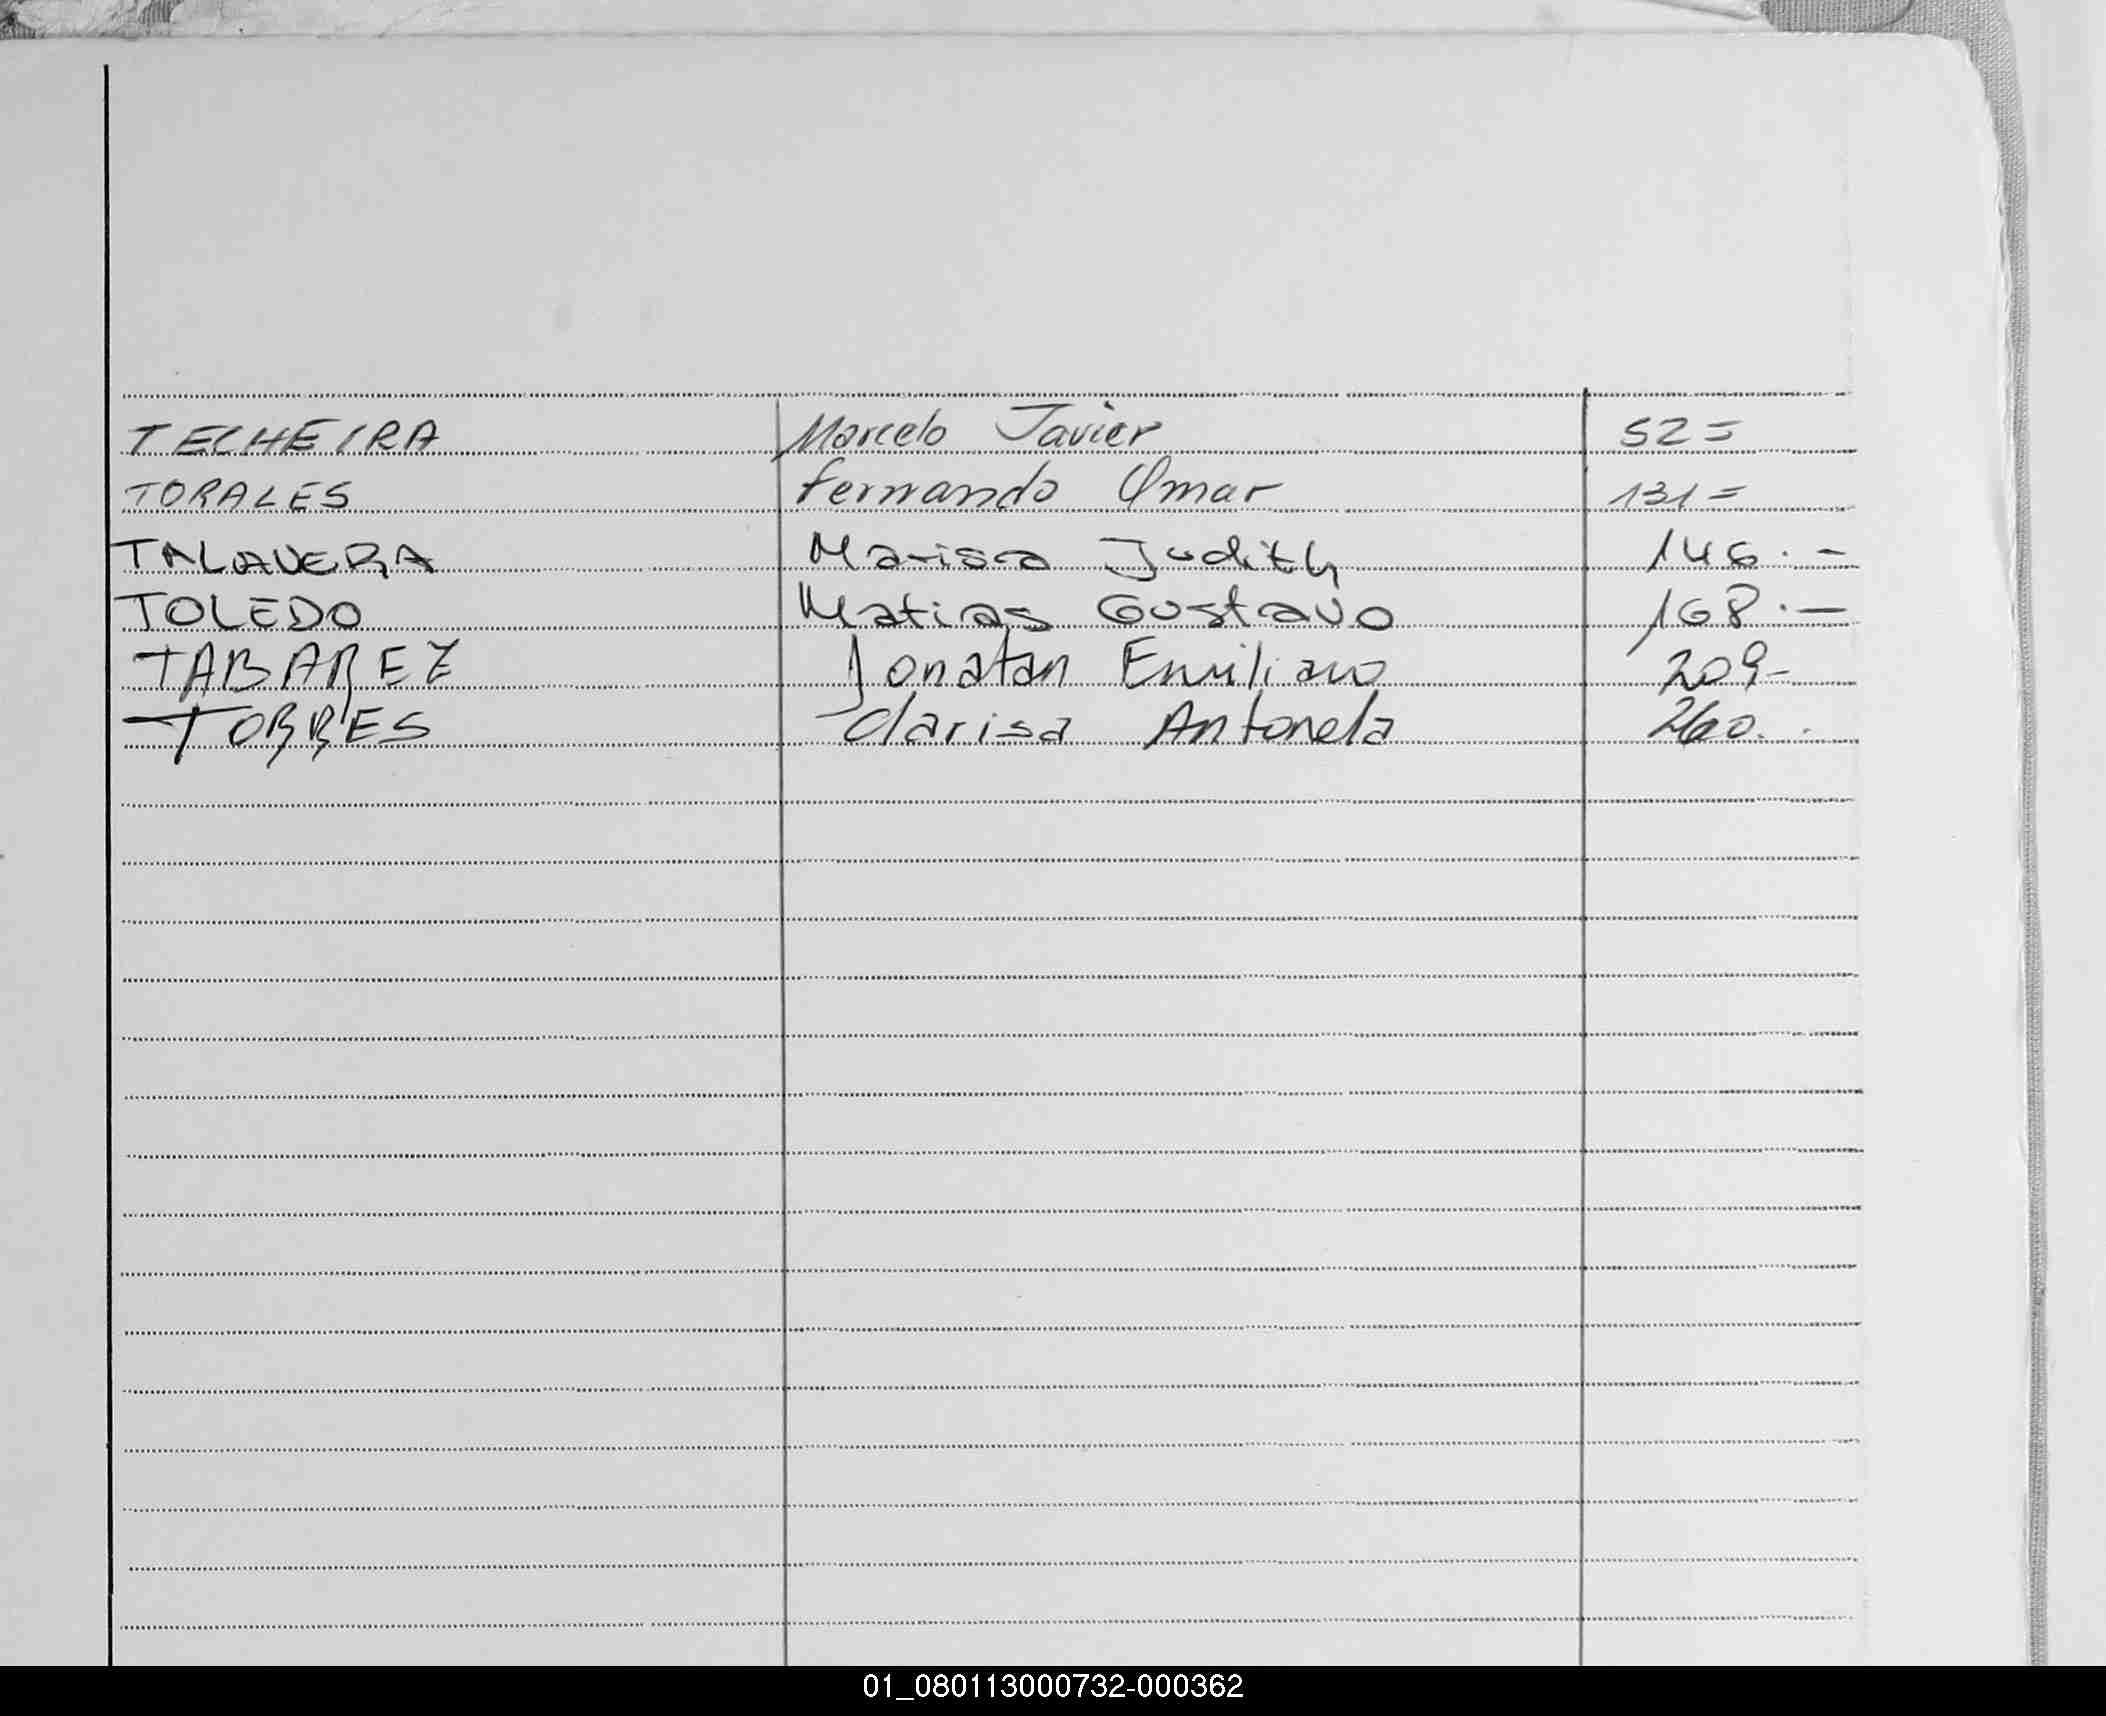 TECHEIRA Marcelo Javier 52=
TORALES Fernando Omar 131=
TALAVERA Marisa Judith 146.-
TOLEDO Matias Gustavo 168.-
TABAREZ Jonatan Emiliano 209-
TORRES Clarisa Antonela 260..
01_080113000732-000362